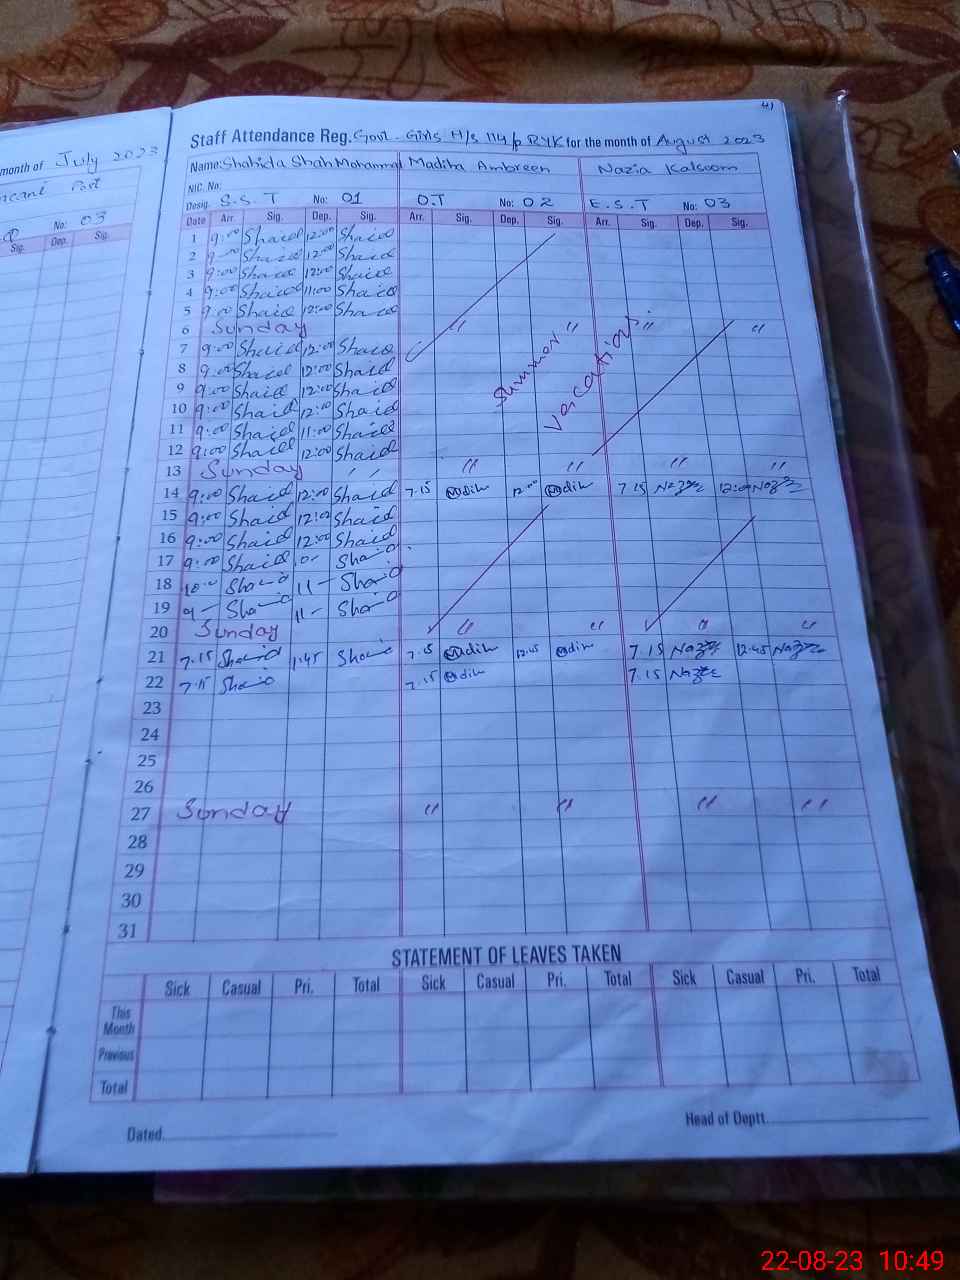 41
month of July 2023
Post
No: 03
Sig. Dep. Sig.
Staff Attendance Reg. Govt. Girls H/s 114/p RYK for the month of August 2023
Name: Shahida Shah Mohammad Madiha Ambreen Nazia Kalsoom
NIC. No:
Desig. S.S.T No: 01 D.T No: 02 E.S.T No: 03
Date Arr. Sig. Dep. Sig. Arr. Sig. Dep. Sig. Arr. Sig. Dep. Sig.
1 9:00 Shaid 12:00 Shaid
2 9:00 Shaid 12:00 Shaid
3 9:00 Shaid 12:00 Shaid
4 9:00 Shaid 11:00 Shaid
5 9:00 Shaid 12:00 Shaid
6 Sunday " " " "
7 9:00 Shaid 12:00 Shaid
Summer Vacation.
8 9:00 Shaid 12:00 Shaid
9 9:00 Shaid 12:00 Shaid
10 9:00 Shaid 12:00 Shaid
11 9:00 Shaid 11:00 Shaid
12 9:00 Shaid 12:00 Shaid
13 Sunday " " " " "
14 9:00 Shaid 12:00 Shaid 7.15 Madiha 12:00 Madiha 7.15 12:00
15 9:00 Shaid 12:00 Shaid
16 9:00 Shaid 12:00 Shaid
17 9:00 Shaid Shaid
18 10:00 Shaid 11 – Shaid
19 9 – Shaid 11 – Shaid
20 Sunday " " " "
21 7.15 Shaid 1:45 Shaid 7.15 Madiha 12:45 Madiha 7.15 12:45
22 7.15 Shaid 7.15 Madiha 7.15
23
24
25
26
27 Sunday " " " "
28
29
30
31
STATEMENT OF LEAVES TAKEN
Sick Casual Pri. Total Sick Casual Pri. Total Sick Casual Pri. Total
This Month
Previous
Total
Dated Head of Deptt.
22-08-23 10:49